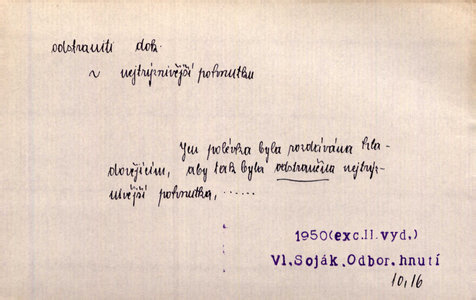 odstraniti dok.
~ nejtrýznivější pohnutku
Jen polévka byla rozdávána hla-
dovějícím, aby tak byla odstraněna nejtrýz-
nivější pohnutka, ......
1950(exc.II.vyd.)
Vl.Soják.Odbor.hnutí
10,16